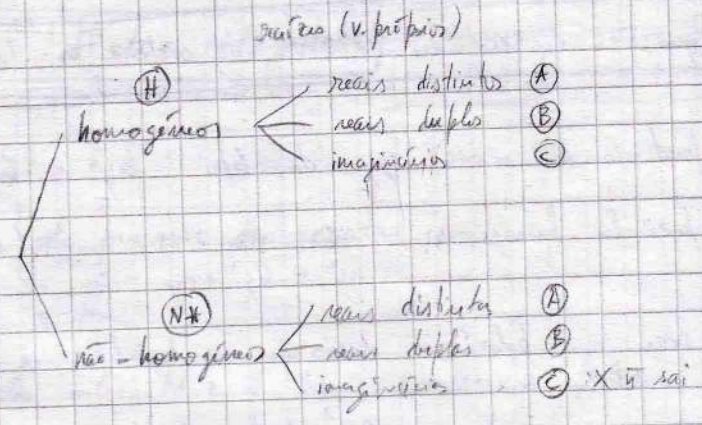 raízes (v. próprios)
H
homogéneos
reais distintos A
reais duplos B
imaginários C
NH
não-homogéneos
reais distintas A
reais duplas B
imaginárias C : X ñ sai